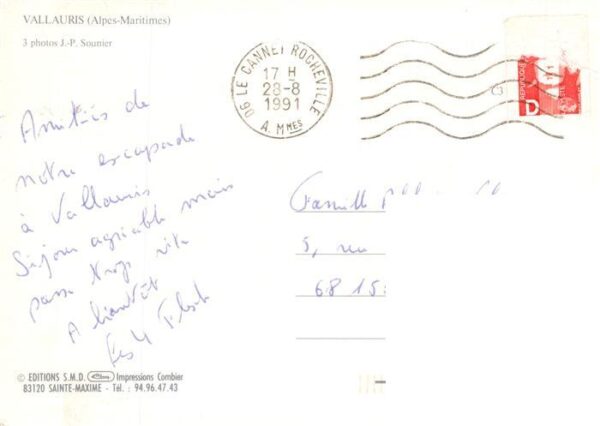 VALLAURIS (Alpes-Maritimes)
3 photos J.-P. Sounier
06 LE CANNET ROCHEVILLE
17 H
28-8
1991
A. MMES
D
Amitiés de
notre escapade
à Vallauris
Séjour agréable mais
passe trop vite
A bientôt
Les 4
Famille
5, rue
68 15
© EDITIONS S.M.D. Impressions Combier
83120 SAINTE-MAXIME - Tél. : 94.96.47.43